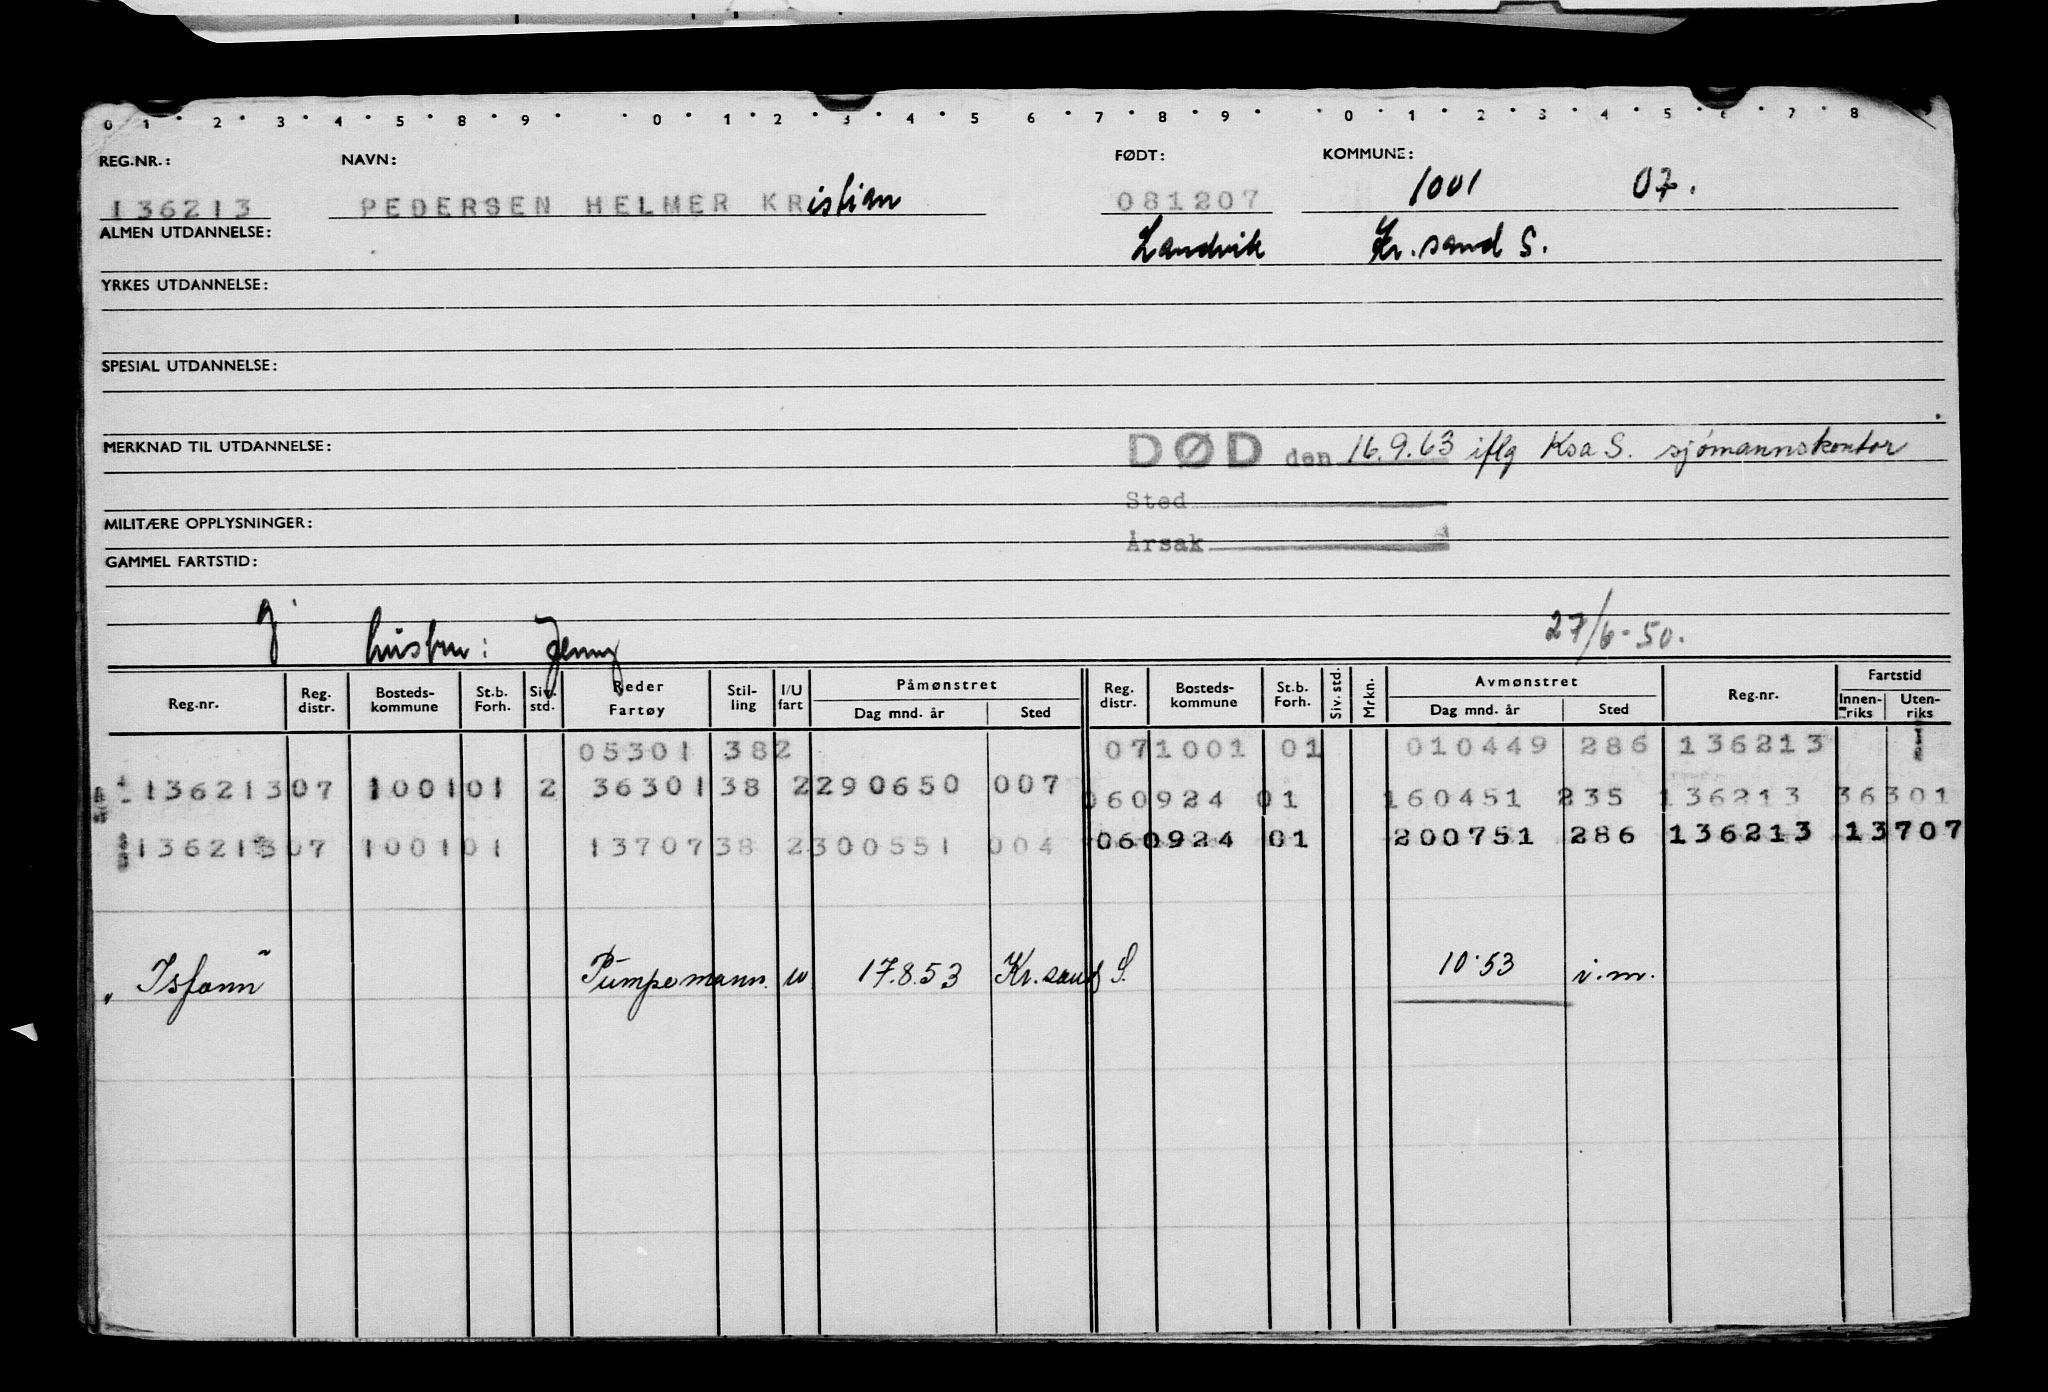 0 1 2 3 4 5 8 9 0 1 2 3 4 5 6 7 8 9 0 1 2 3 4 5 6 7 8
REG.NR.: NAVN: FØDT: KOMMUNE:
1001 07.
136213 PEDERSEN HELMER KRistian 081207
ALMEN UTDANNELSE: Landvik Kr. sand S.
YRKES UTDANNELSE:
SPESIAL UTDANNELSE:
MERKNAD TIL UTDANNELSE: DØD den 16.9.63 iflg Ksa S. sjømannskontor
Sted
MILITÆRE OPPLYSNINGER:
Årsak
GAMMEL FARTSTID:
g hustru: Jenny 27/6-50.
Reg.nr. Reg. distr. Bosteds-kommune St.b. Forh. Siv. std. Reder Fartøy Stil-ling I/U fart Påmønstret Dag mnd. år Sted Reg. distr. Bosteds-kommune St.b. Forh. Siv. std. Mrkn. Avmønstret Dag mnd. år Sted Reg.nr. Fartstid Innen-riks Uten-riks
05301 382 071001 01 010449 286 136213
13621307 100101 2 3630138 2290650 007 060924 01 160451 235 136213 36301
13621307 100101 1370738 2300551 004 060924 01 200751 286 136213 13707
"Isfonn" Pumpemann u 17.8.53 Kr.sand S. 10.53 i.m.